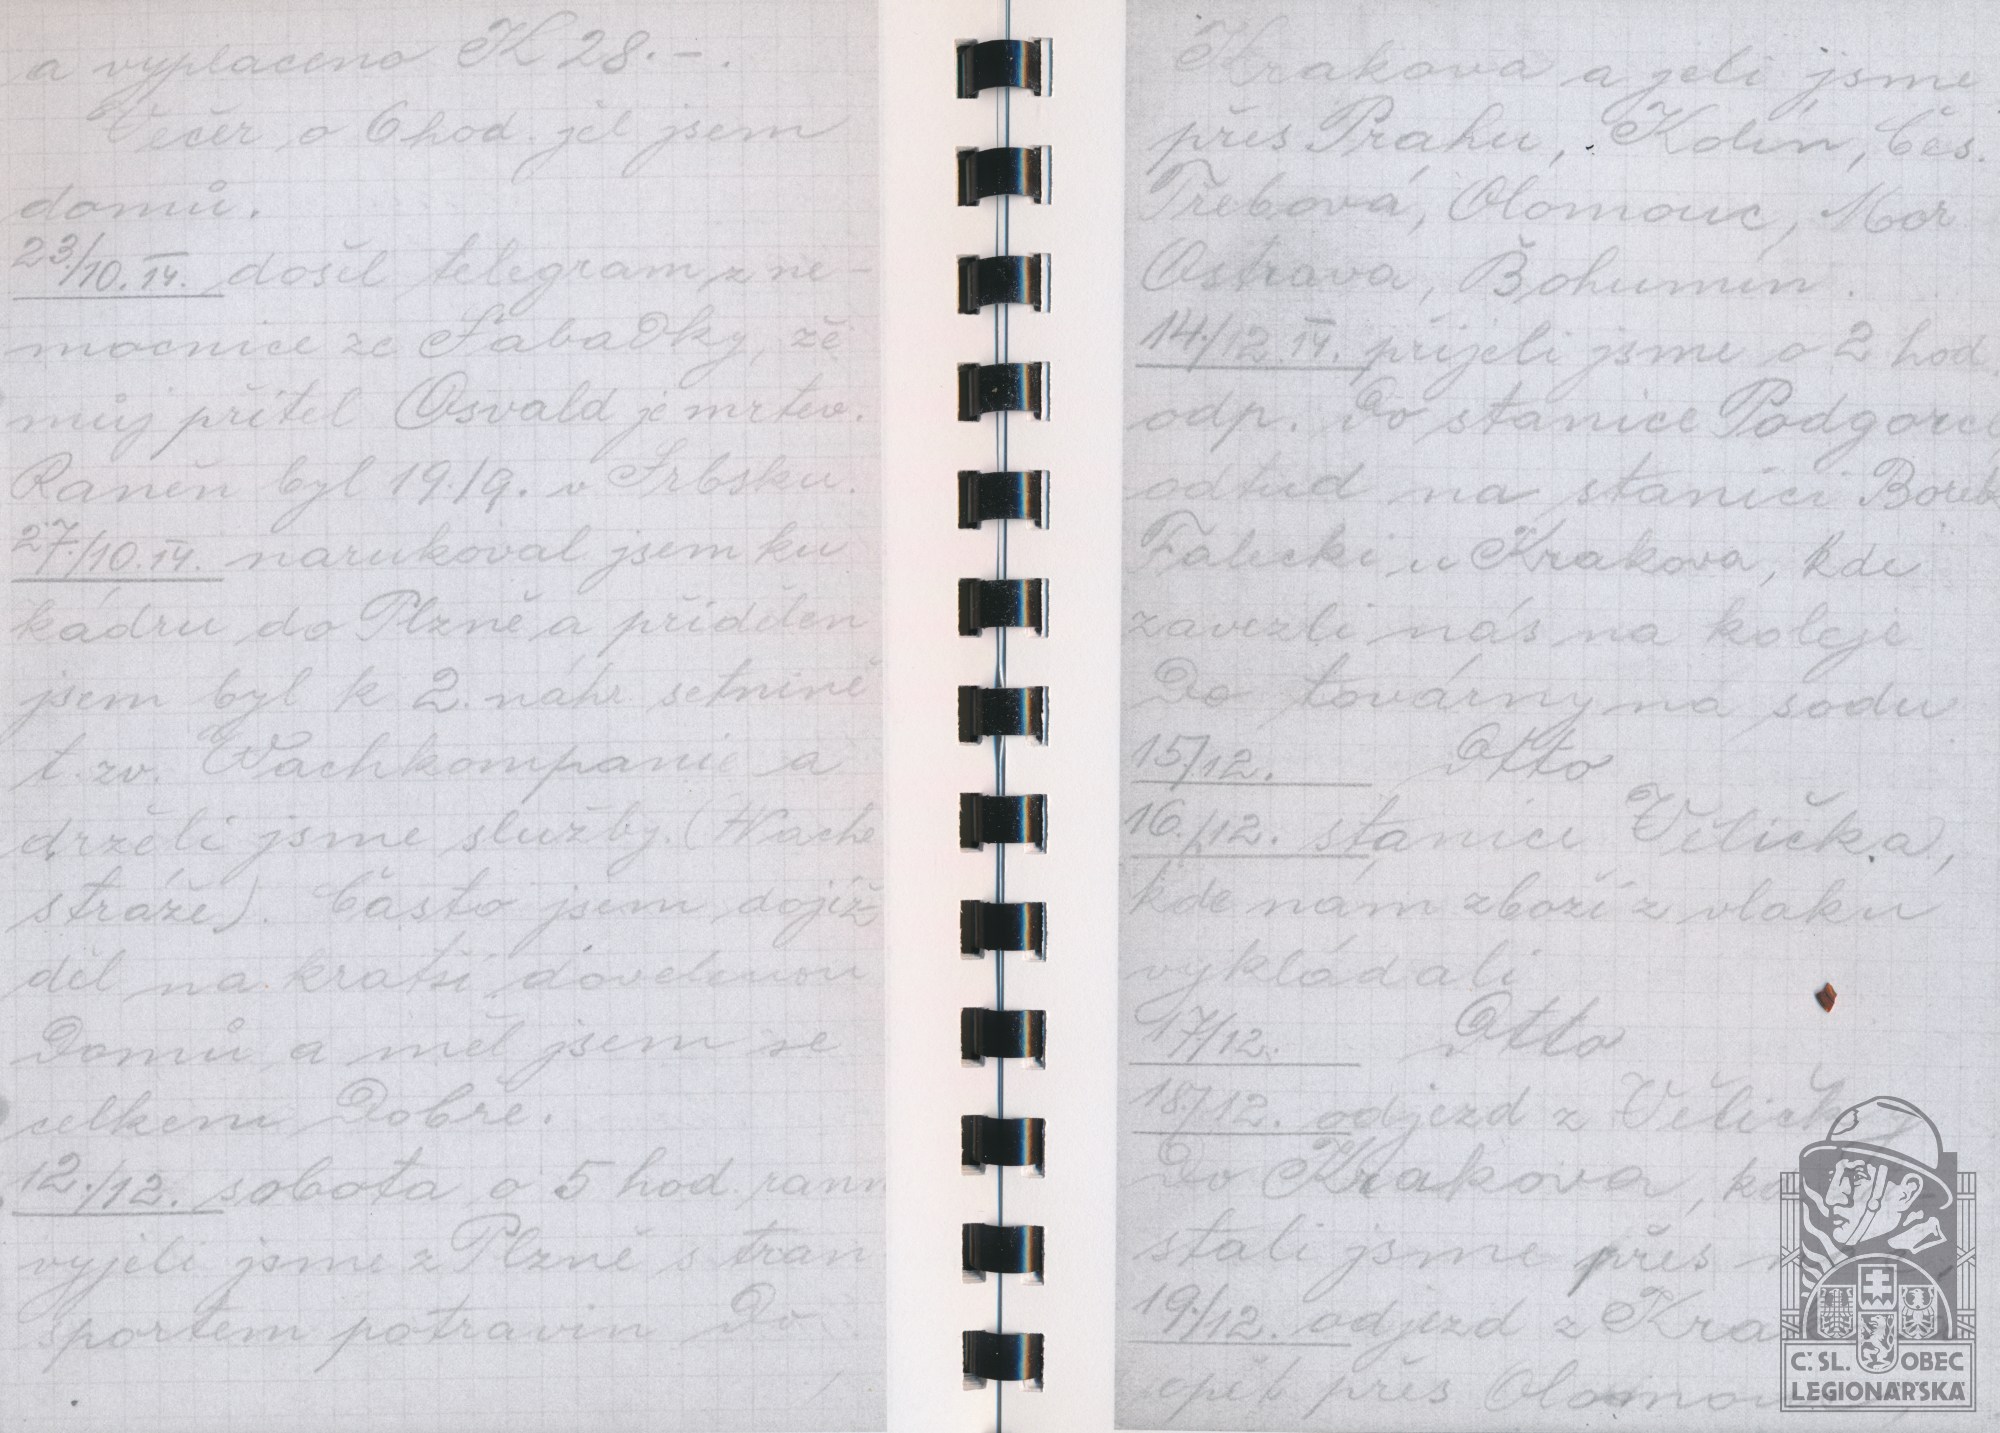 a vyplaceno K 28.-.
Večer o 6 hod. jel jsem
domů.
23./10. 14. došel telegram z ne-
mocnice ze Sabadky, že
můj přítel Osvald je mrtev.
Raněn byl 19./9. v Srbsku.
27./10. 14. narukoval jsem ku
kádru do Plzně a přidělen
jsem byl k 2. náhr. setnině
t. zv. Wachkompanie a
drželi jsme služby. (Wache
stráže). Často jsem dojíž-
děl na kratší dovolenou
Domů a měl jsem se
celkem Dobře.
12./12. sobota o 5 hod. rann
vyjeli jsme z Plzně s tran-
sportem potravin Do
Krakova a jeli jsme
přes Prahu, Kolín, Čes.
Třebová, Olomouc, Mor
Ostrava, Bohumín.
14./12. 14. přijeli jsme o 2 hod.
odp. Do stanice Podgorce
odtud na stanici Borek
Falecki u Krakova, kde
zavezli nás na koleje
Do továrny na sodu
15./12. Otto
16./12. stanici Vělička,
kde nám zboží z vlaku
vykládali
17/12. Otto
18/12. odjezd z Věličky
Do Krakova,
stali jsme přes
19./12. odjezd z Kra
opět přes Olomou
Č. SL. OBEC
LEGIONÁŘSKÁ